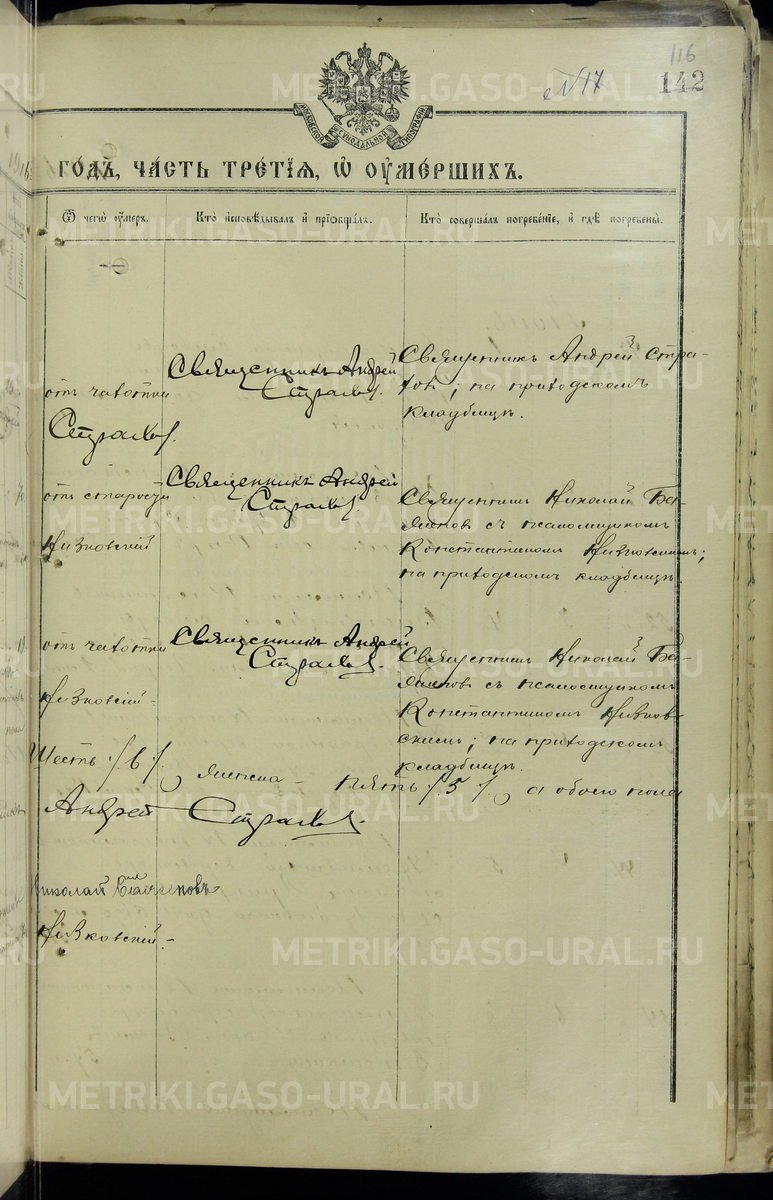 METRIKI.GASO-URAL.RU
№17
116
142
МОСКОВСКОЙ СѴНОДАЛЬНОЙ ТИПОГРАФІИ
го́дъ, ча́сть тре́тїѧ, ѡ҆ ᲂу҆ме́ршихъ.
Ѿ чегѡ̀ ᲂу҆́меръ.
Кто̀ и҆сповѣ́дывалъ и҆ прїѡбща́лъ.
Кто̀ соверша́лъ погребе́нїе, и҆ гдѣ̀ погребены̀.
отъ чахотки
Священникъ Андрей
Страховъ.
Священникъ Андрей Стра-
ховъ; на приходскомъ
кладбищѣ.
Страховъ.
отъ старости
Священникъ Андрей
Страховъ.
Священникъ Николай
съ псаломщикомъ
Константиномъ Низковскимъ;
на приходскомъ кладбищѣ.
Низковскій
отъ чахотки
Священникъ Андрей
Страховъ.
Священникъ Николай
съ псаломщикомъ
Константиномъ Низков-
скимъ; на приходскомъ
кладбищѣ.
Низковскій.
Шесть /6/, женска – пять /5/, а обоего пола
Андрей Страховъ.
Николай
Низковскій.
METRIKI.GASO-URAL.RU